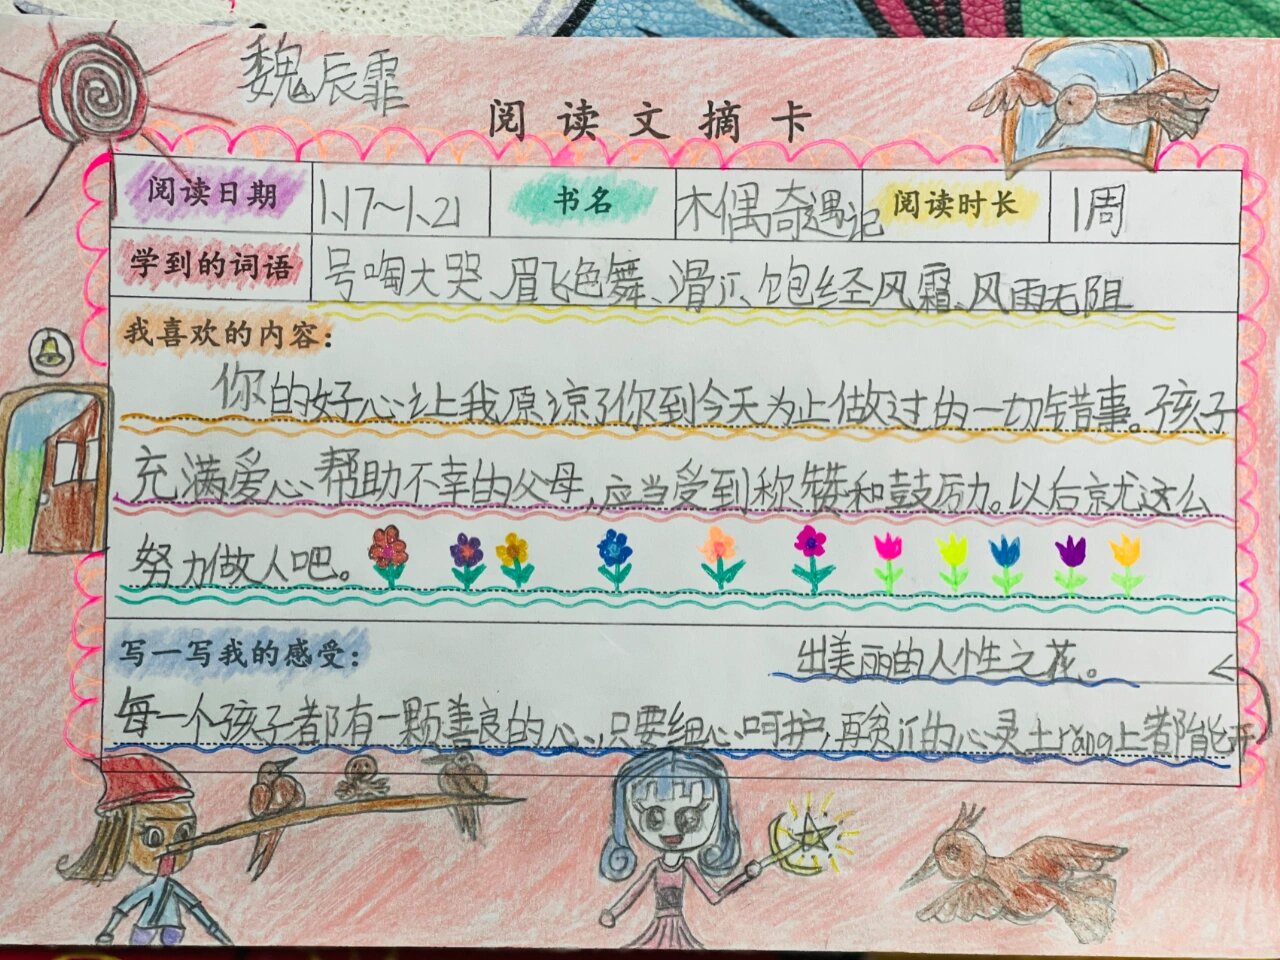 魏辰霏
阅读文摘卡
阅读日期 1、17~1、21 书名 木偶奇遇记 阅读时长 1周
学到的词语 号啕大哭、眉飞色舞、滑氵、饱经风霜、风雨无阻
我喜欢的内容：
你的好心让我原谅了你到今天为止做过的一切错事。孩子
充满爱心帮助不幸的父母，应当受到称赞和鼓励。以后就这么
努力做人吧。
写一写我的感受：
出美丽的人性之花。
每一个孩子都有一颗善良的心，只要细心呵护，再贫氵的心灵土rǎng上都能开